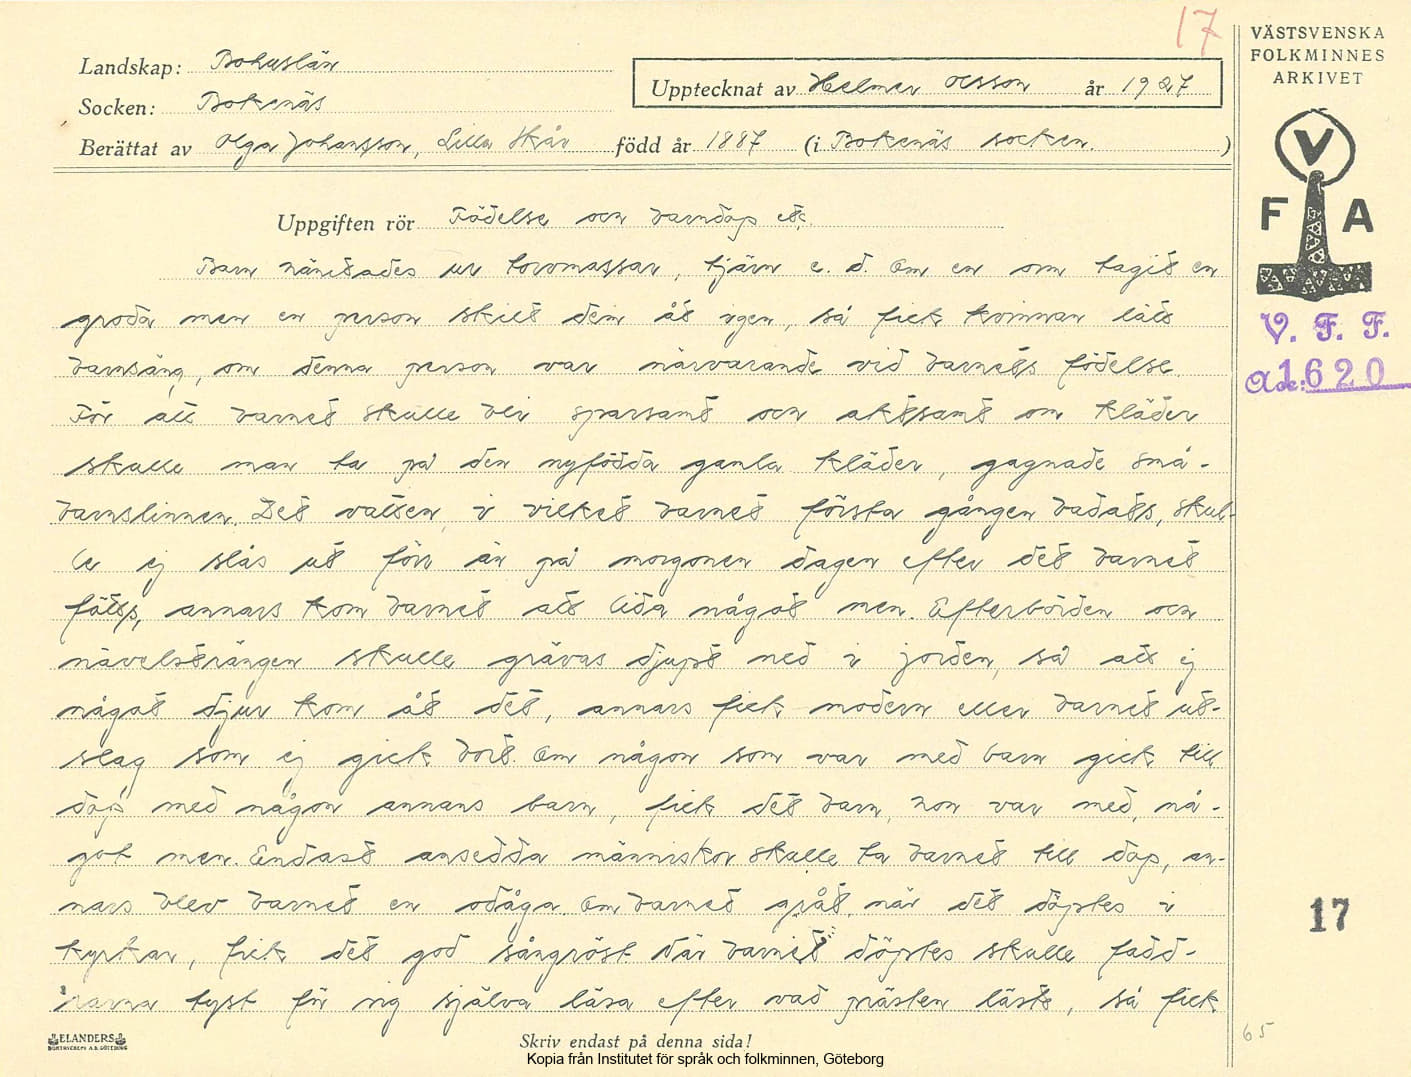 17
VÄSTSVENSKA
FOLKMINNES
ARKIVET
Landskap: Bohuslän
Upptecknat av Helmer Olsson år 1927
Socken: Bokenäs
Berättat av Olga Johansson, Lilla Skår född år 1887 (i Bokenäs socken. )
V
F A
Uppgiften rör Födelse och barndop etc.
Barn hämtades ur torvmossar, tjärn o. d. Om en orm tagit en
groda men en person skilt dem åt igen, så fick kvinnan lätt
barnsäng, om denna person var närvarande vid barnets födelse.
För att barnet skulle bli sparsamt och aktsamt om kläder
skulle man ta på den nyfödda gamla kläder, gagnade små-
barnslinnen. Det vatten i vilket barnet första gången badats, skul-
le ej slås ut förr än på morgonen dagen efter det barnet
fötts, annars kom barnet att lida något men. Efterbörden och
nävelsträngen skulle grävas djupt ned i jorden, så att ej
något djur kom åt det, annars fick modern eller barnet ut-
slag som ej gick bort. Om någon som var med barn gick till
dop med någon annans barn, fick det barn, hon var med, nå-
got men. Endast ansedda människor skulle ta barnet till dop, an-
nars blev barnet en odåga. Om barnet grät, när det döptes i
kyrkan, fick det god sångröst. När barnet döptes skulle fadd-
rarna tyst för sig själva läsa efter vad prästen läste, så fick
V. F. F.
Acc: 1620
17
65
ELANDERS
BOKTRYCKERI A.B. GÖTEBORG
Skriv endast på denna sida!
Kopia från Institutet för språk och folkminnen, Göteborg